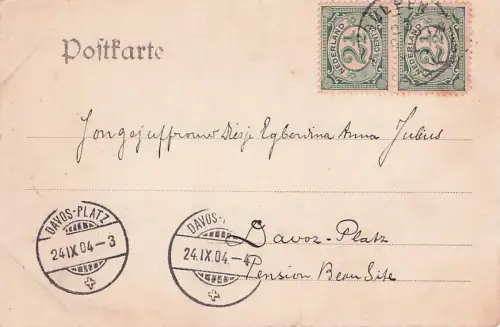 Postkarte
NEDERLAND 2½ CENT
NEDERLAND 2½ CENT
Jongejuffrouw Diesje Egberdina Anna Julius
DAVOS-PLATZ
24.IX.04-3
DAVOS-
24.IX.04-4
Davoz-Platz
Pension Beau Site